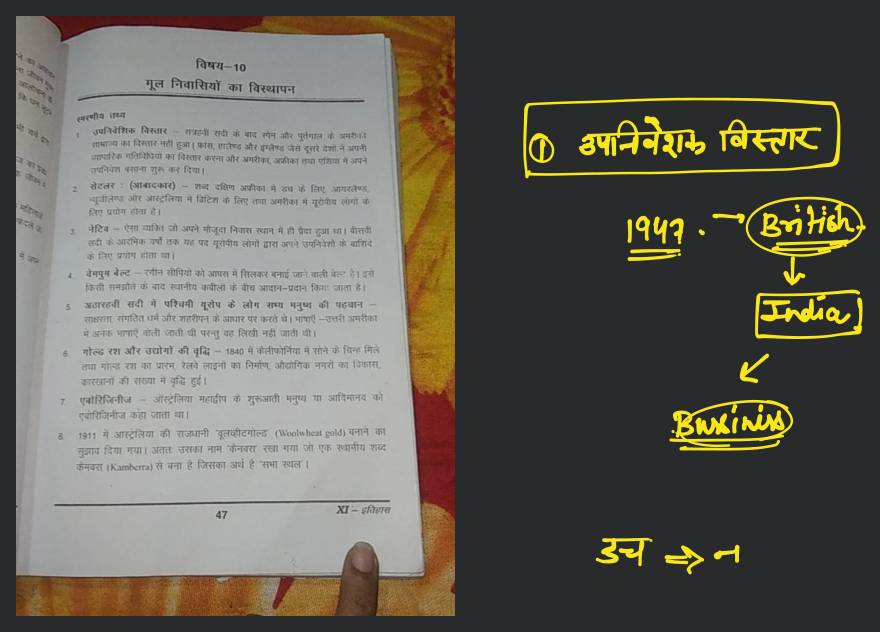 विषय–10
मूल निवासियों का विस्थापन
स्मरणीय तथ्य
1. उपनिवेशिक विस्तार – सत्रहवीं सदी के बाद स्पेन और पुर्तगाल के अमरीकी
साम्राज्य का विस्तार नहीं हुआ। फ्रांस, हालैण्ड और इंग्लैण्ड जैसे दूसरे देशों ने अपनी
व्यापारिक गतिविधियों का विस्तार करना और अमरीका, अफ्रीका तथा एशिया में अपने
उपनिवेश बसाना शुरू कर दिया।
2. सेटलर : (आबादकार) – शब्द दक्षिण अफ्रीका में डच के लिए, आयरलैण्ड,
न्यूजीलैण्ड और आस्ट्रेलिया में ब्रिटिश के लिए तथा अमरीका में यूरोपीय लोगों के
लिए प्रयोग होता है।
3. नेटिव – ऐसा व्यक्ति जो अपने मौजूदा निवास स्थान में ही पैदा हुआ था। बीसवीं
सदी के आरंभिक वर्षों तक यह पद यूरोपीय लोगों द्वारा अपने उपनिवेशों के बाशिंदे
के लिए प्रयोग होता था।
4. वेमपुम बेल्ट – रंगीन सीपियों को आपस में सिलकर बनाई जाने वाली बेल्ट है। इसे
किसी समझौते के बाद स्थानीय कबीलों के बीच आदान–प्रदान किया जाता है।
5. अठारहवीं सदी में पश्चिमी यूरोप के लोग सभ्य मनुष्य की पहचान –
साक्षरता, संगठित धर्म और शहरीपन के आधार पर करते थे। भाषाएँ –उत्तरी अमरीका
में अनक भाषाएँ बोली जाती थी परन्तु वह लिखी नहीं जाती थी।
6. गोल्ड रश और उद्योगों की वृद्धि – 1840 में केलीफोर्निया में सोने के चिन्ह मिले
तथा गोल्ड रश का प्रारंभ, रेलवे लाइनों का निर्माण, औद्योगिक नगरों का विकास,
कारखानों की संख्या में वृद्धि हुई।
7. एबोरिजिनीज – ऑस्ट्रेलिया महाद्वीप के शुरूआती मनुष्य या आदिमानव को
एबोरिजिनीज कहा जाता था।
8. 1911 में आस्ट्रेलिया की राजधानी 'वूलव्हीटगोल्ड' (Woolwheat gold) बनाने का
सुझाव दिया गया। अंततः उसका नाम 'केनबरा' रखा गया जो एक स्थानीय शब्द
कैमबरा (Kamberra) से बना है जिसका अर्थ है 'सभा स्थल'।
47
XI – इतिहास
① उपनिवेशक विस्तार
1947. → British.
India
Businiss
डच ⇒ न